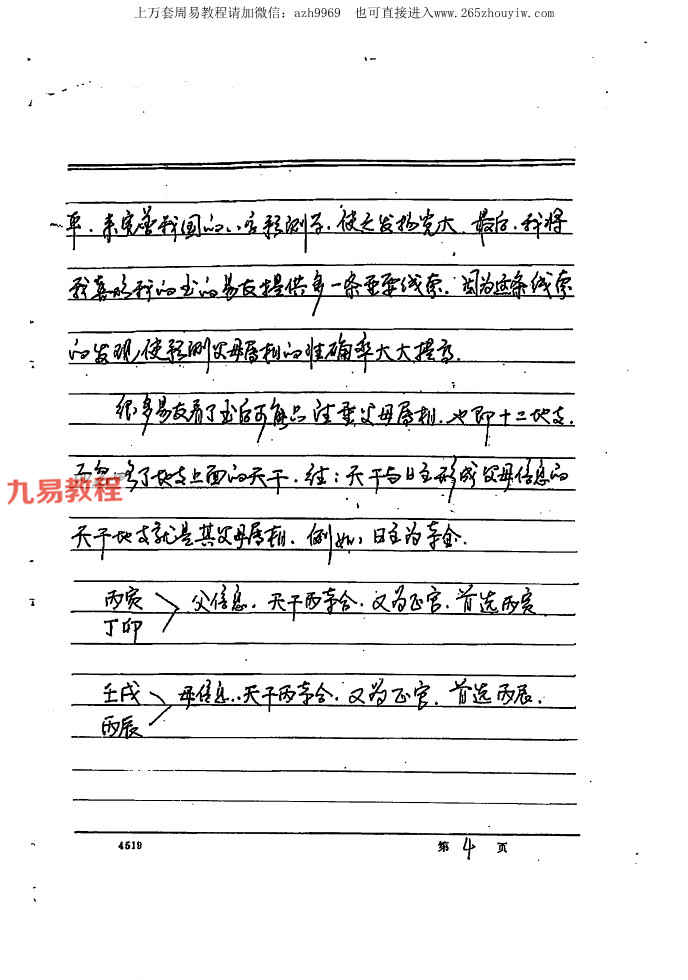 上万套周易教程请加微信：azh9969 也可直接进入www.265zhouyiw.com
平，来完善我国的八字预测学，使之发扬光大，最后，我将
我喜欢我的书的易友提供多一条重要线索，因为这条线索
的发现，使预测父母属相的准确率大大提高。
很多易友看了书后可能只注重父母属相，也即十二地支，
而忽略了地支上面的天干，注：天干与日主形成父母信息的
天干地支就是其父母属相，例如，日主为辛金，
九易教程
丙寅 父信息，天干丙辛合，又为正官，首选丙寅
丁卯
壬戌 母信息，天干丙辛合，又为正官，首选丙辰，
丙辰
4519 第4页